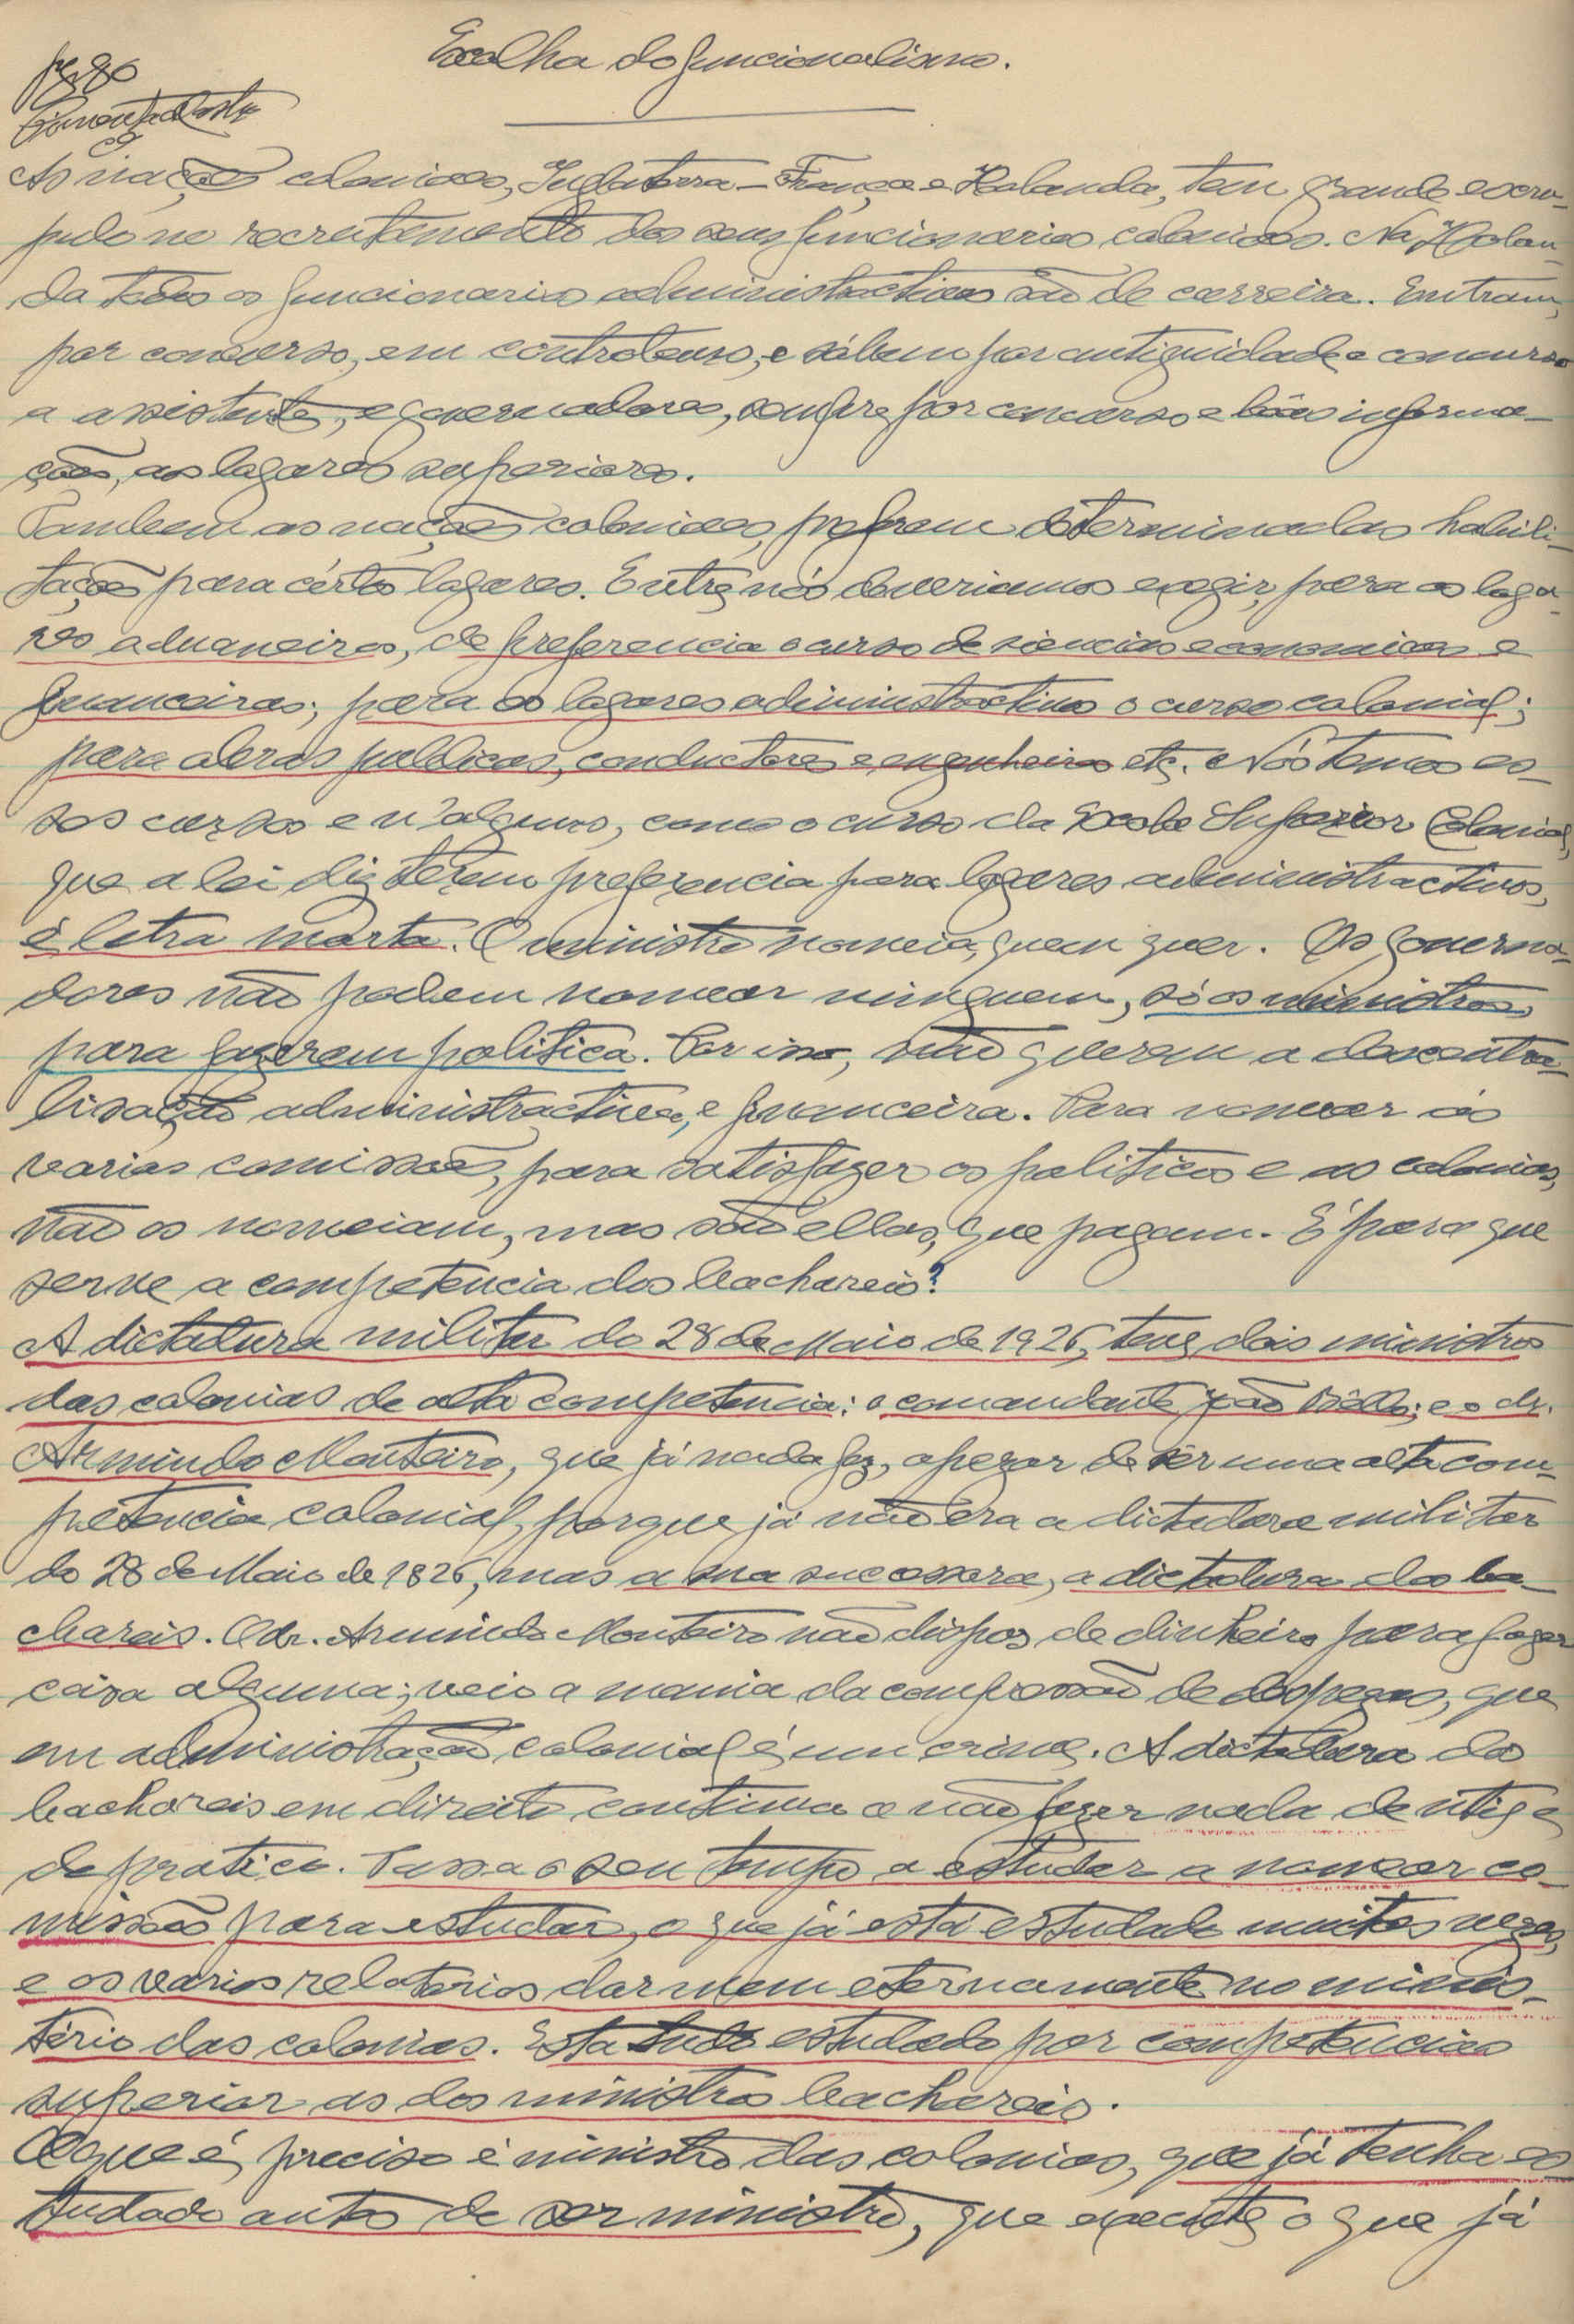 Escolha do funcionalismo.
pg. 86
Pimenta da Costa
As nações coloniaes, Inglaterra – França e Holanda, tem grande escru-
pulo no recrutamento dos seus funcionarios coloniaes. Na Holan-
da todos os funcionarios administractivos são de carreira. Entram,
por concurso, em controleurs, e sóbem por antiguidade e concurso
a assistente, e governadores, sempre por concurso e bôas informa-
ções, aos logares superiores.
Tambem as nações coloniaes, preferem determinadas habili-
tações para cértos logares. Entre nós deveriamos exegir, para os loga-
res aduaneiros, de preferencia o curso de siencias economicas e
financeiras; para os logares administractivos o curso colonial;
para obras publicas, conductores e engenheiros etc. Nós temos es-
ses cursos e n'alguns, como o curso da Escola Superior Colonial,
que a lei diz terem preferencia para logares administractivos,
é letra morta. O ministro nomeia, quem quer. Os governa-
dores não podem nomear ninguem, só os ministros
para fazerem politica. Por isso, não querem a descentra-
lisação administractiva, e financeira. Para nomear as
varias comissões, para satisfazer os politicos e as colonias,
não os nomeiam, mas são ellas, que pagam. E' para que
serve a competencia dos bachareis?
A dictadura militar do 28 de Maio de 1926, teve dois ministros
das colonias de alta competencia: o comandante João Bello; e o dr.
Armindo Monteiro, que já nada fez, apezar de sêr uma alta com-
petencia colonial, porque já não era a dictadura militar
do 28 de Maio de 1826, mas a sua sucessora, a dictadura dos ba-
chareis. O dr. Armindo Monteiro não dispos de dinheiro para fazer
coisa alguma; veio a mania da compressão de despezas, que
em administração colonial é um crime. A dictadura dos
bachareis em direito continua a não fazer nada de util e
de pratico. Passa o seu tempo a estudar a nomear co-
missões para estudar, o que já está estudado muitas vezes,
e os varios relatorios dormem eternamente no minis-
tério das colonias. Esta tudo estudado por competencias
superior as dos ministros bachareis.
O que é, preciso é ministro das colonias, que já tenha es-
tudado antes de ser ministro, que execute o que já